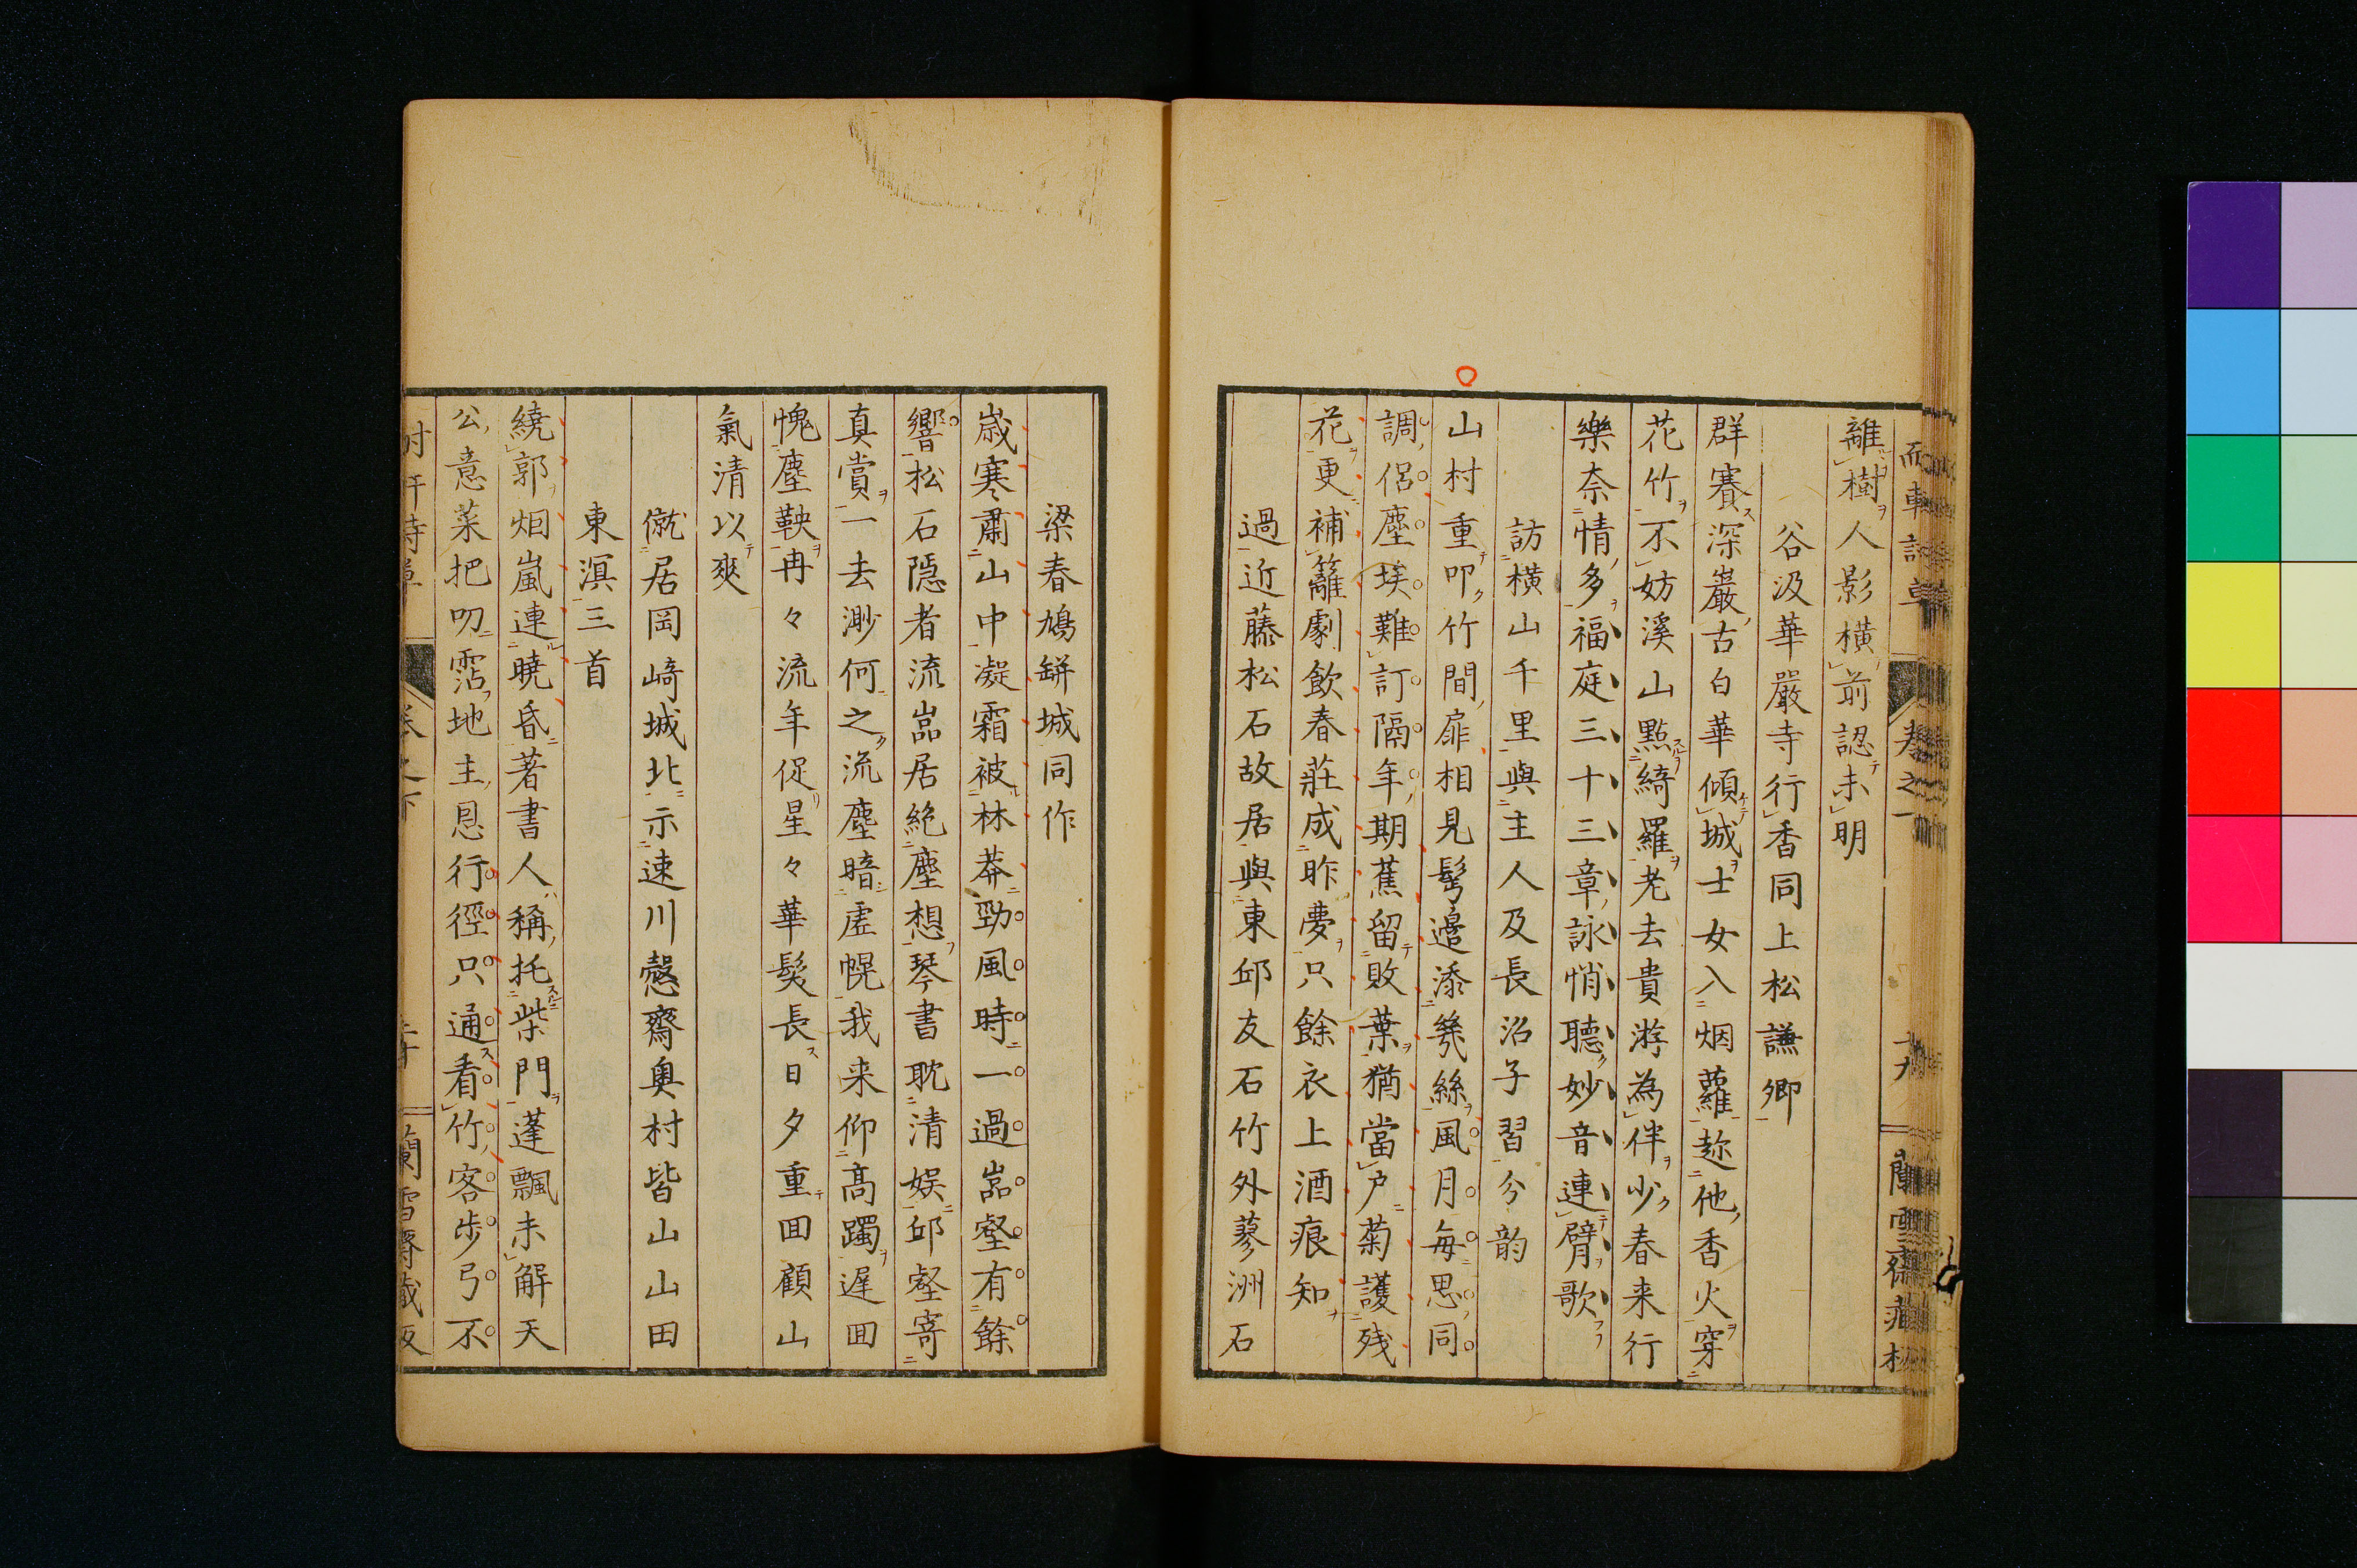 離樹人影横前認未明
谷汲華嚴寺行香同上松謙卿
群賽深巖古白華傾城士女入烟蘿趂他香火穿
花竹不妨溪山點綺羅老去貴游為伴少春来行
樂奈情多福庭三十三章詠悄聽妙音連臂歌
訪横山千里與主人及長沼子習分韵
山村重叩竹間扉相見髩邉添幾絲風月每思同
調侶塵埃難訂隔年期蕉留敗葉猶當戸菊護残
花更補籬劇飲春莊成昨夢只餘衣上酒痕知
過近藤松石故居與東邱友石竹外蓼洲石
梁春鳩缾城同作
歳寒肅山中凝霜被林莽勁風時一過嵓壑有餘
響松石隠者流嵓居絶塵想琴書耽清娯邱壑寄
真賞一去渺何之流塵暗虚幌我来仰髙躅遅囬
愧塵鞅冉々流年促星々華髪長日夕重囬顧山
氣清以爽
僦居岡崎城北示速川愨齋奥村皆山山田
東溟三首
繞郭烟嵐連暁昏著書人稱托柴門蓬飄未解天
公意菜把叨霑地主恩行徑只通看竹客歩弓不
卷之下
蘭雪齋藏板